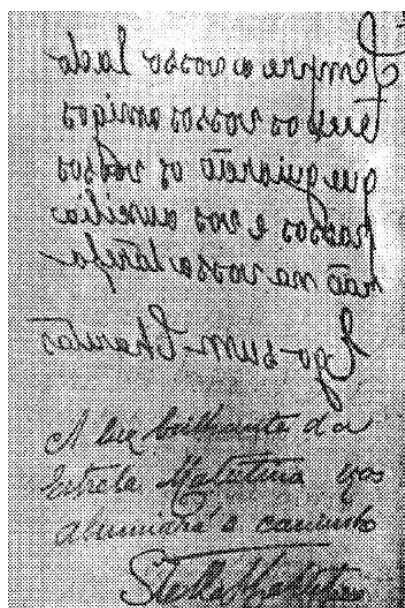 Sempre a vosso lado
tendes vossos amigos
que guiarão os vossos
passos e vos auxilia
rão na vossa tarefa
Ego-sum-Charitas
A luz brilhante da
Estrela Matutina vos
alumiará o caminho
Stella Matutina